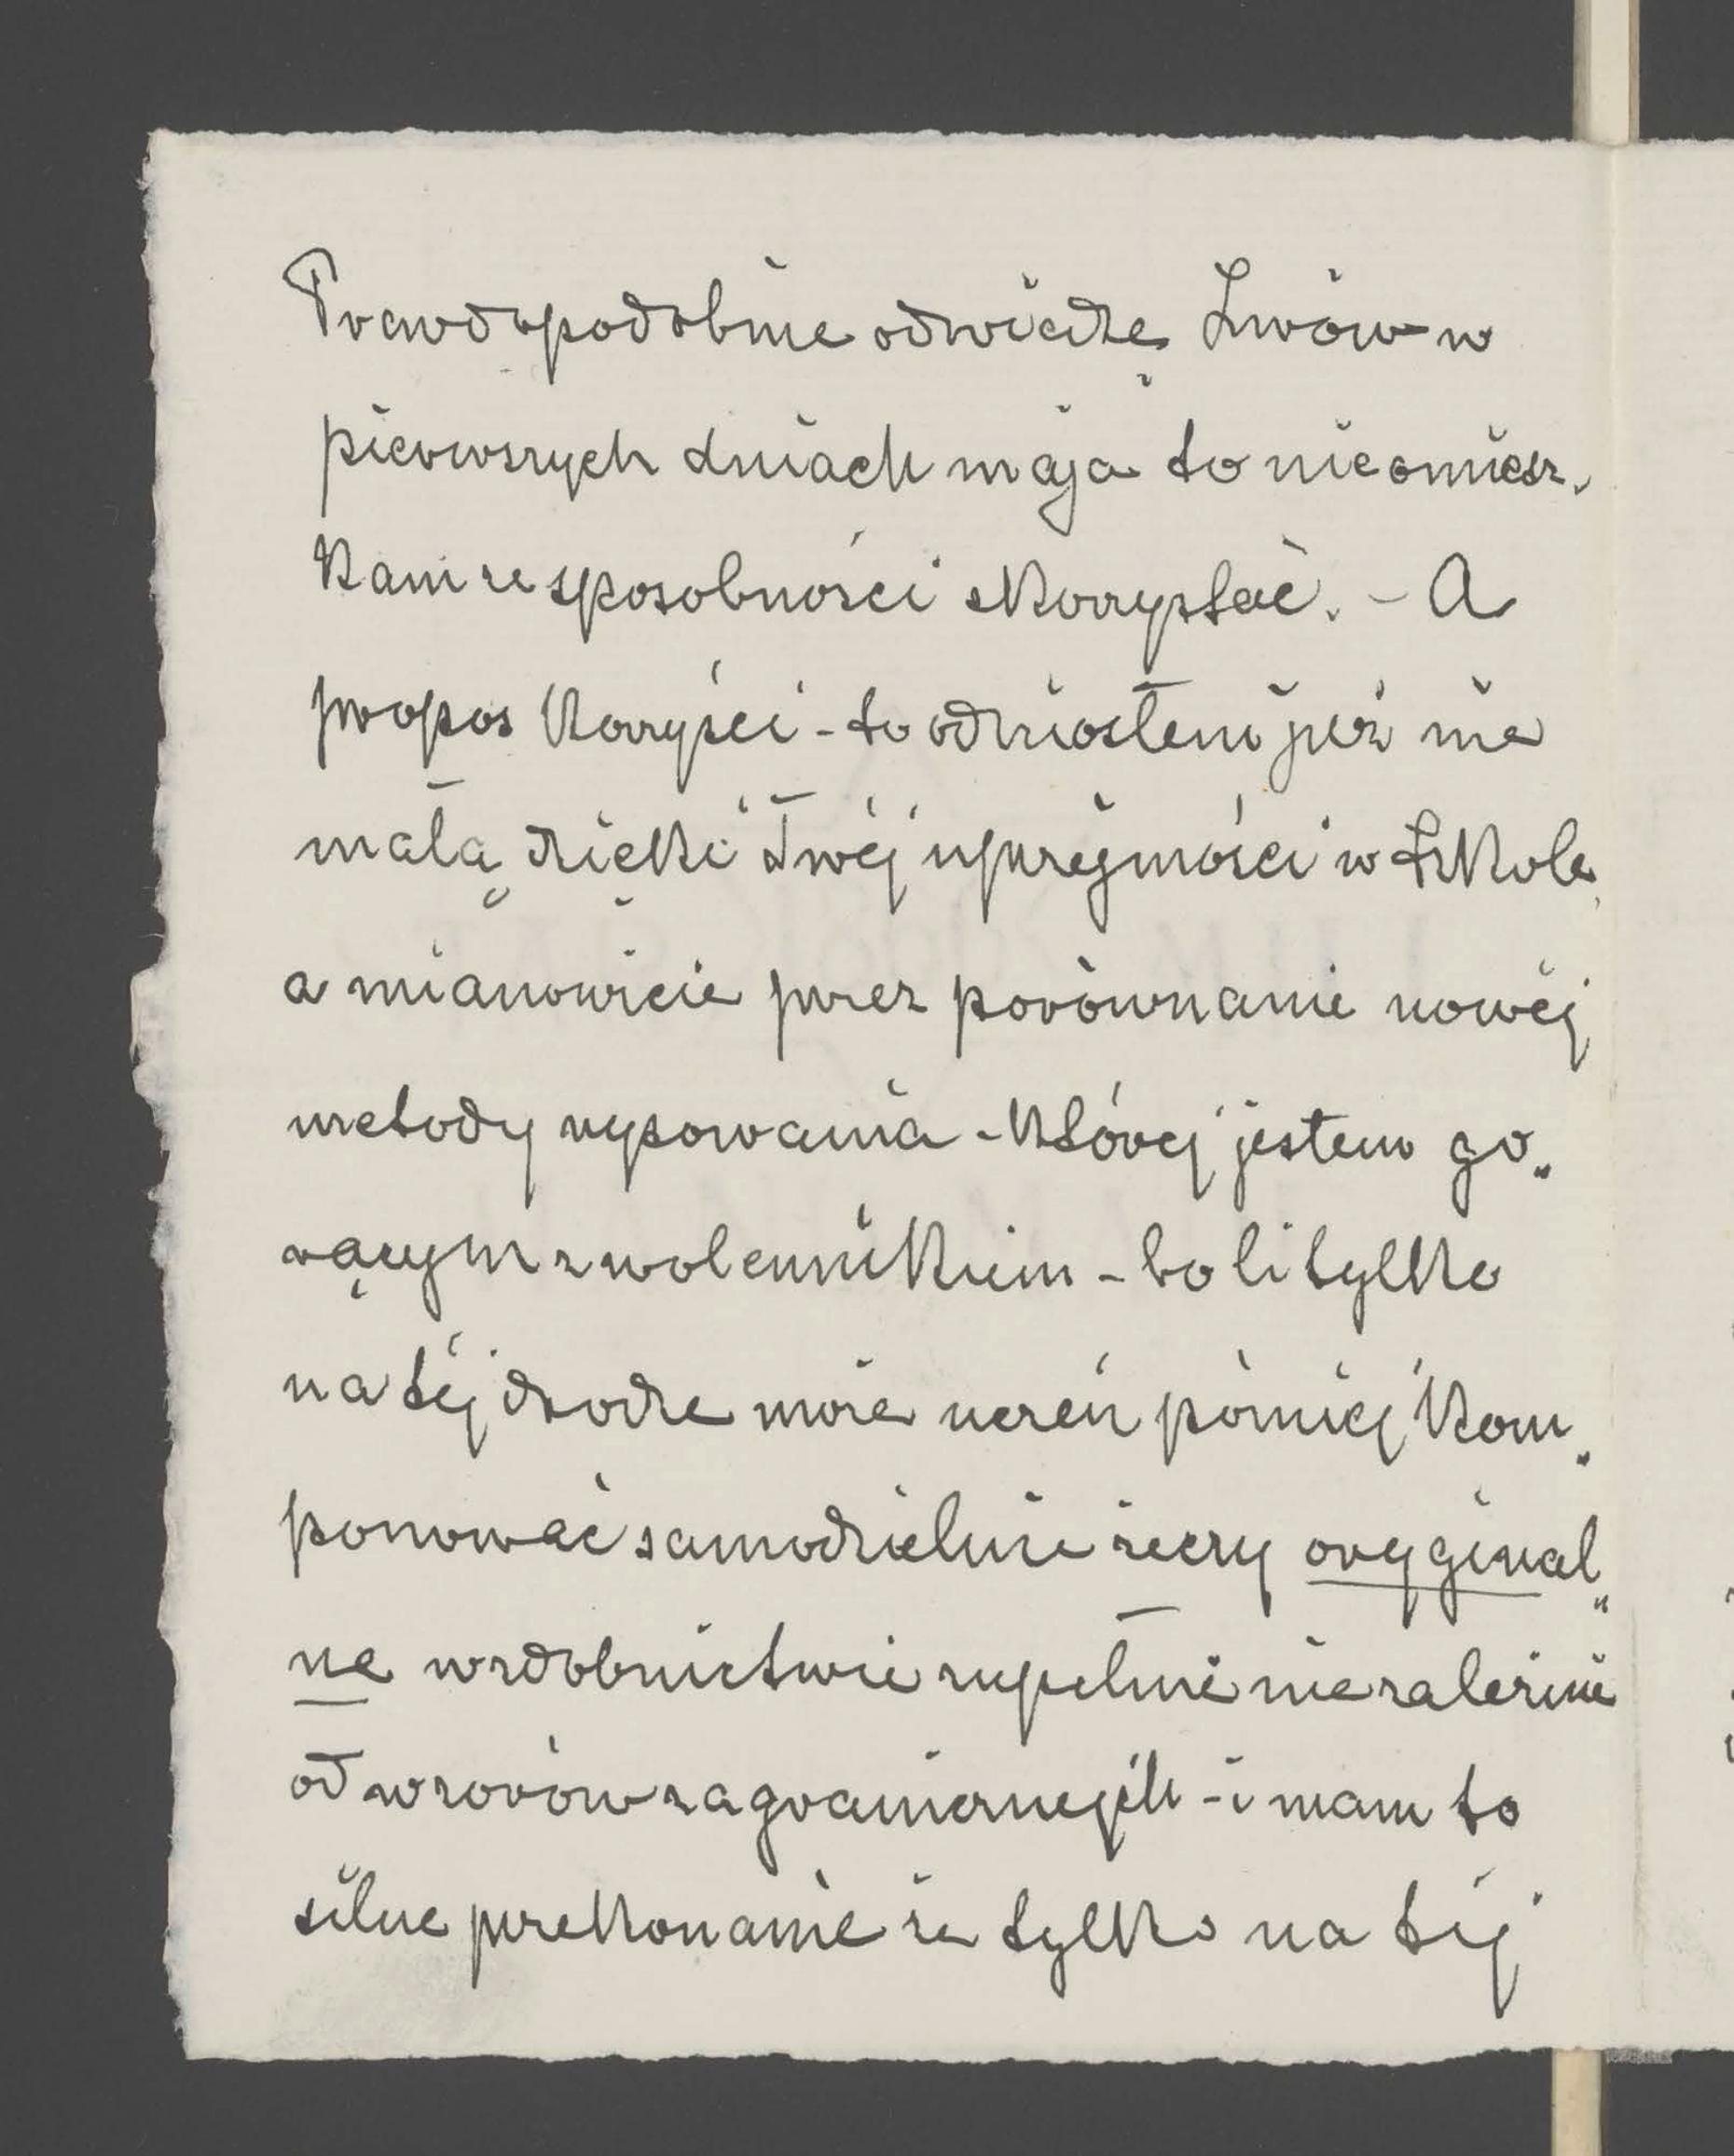 Prawdopodobnie odwiedzę Lwów w
pierwszych dniach maja to nieomiesz-
kam ze sposobności skorzystać. – A
propos korzyści – to odniosłem już nie
małą dzięki Twéj uprzejmości w szkole,
a mianowicie przez porównanie nowéj
metody rysowania – któréj jestem go„
rącym zwolennikiem – bo li tylko
na téj drodze może uczeń później kom„
ponować samodzielnie rzeczy orygina̲l„
ne w zdobnictwie zupełnie niezależnie
od wzorów zagranicznych – i mam to
silne przekonanie że tylko na téj